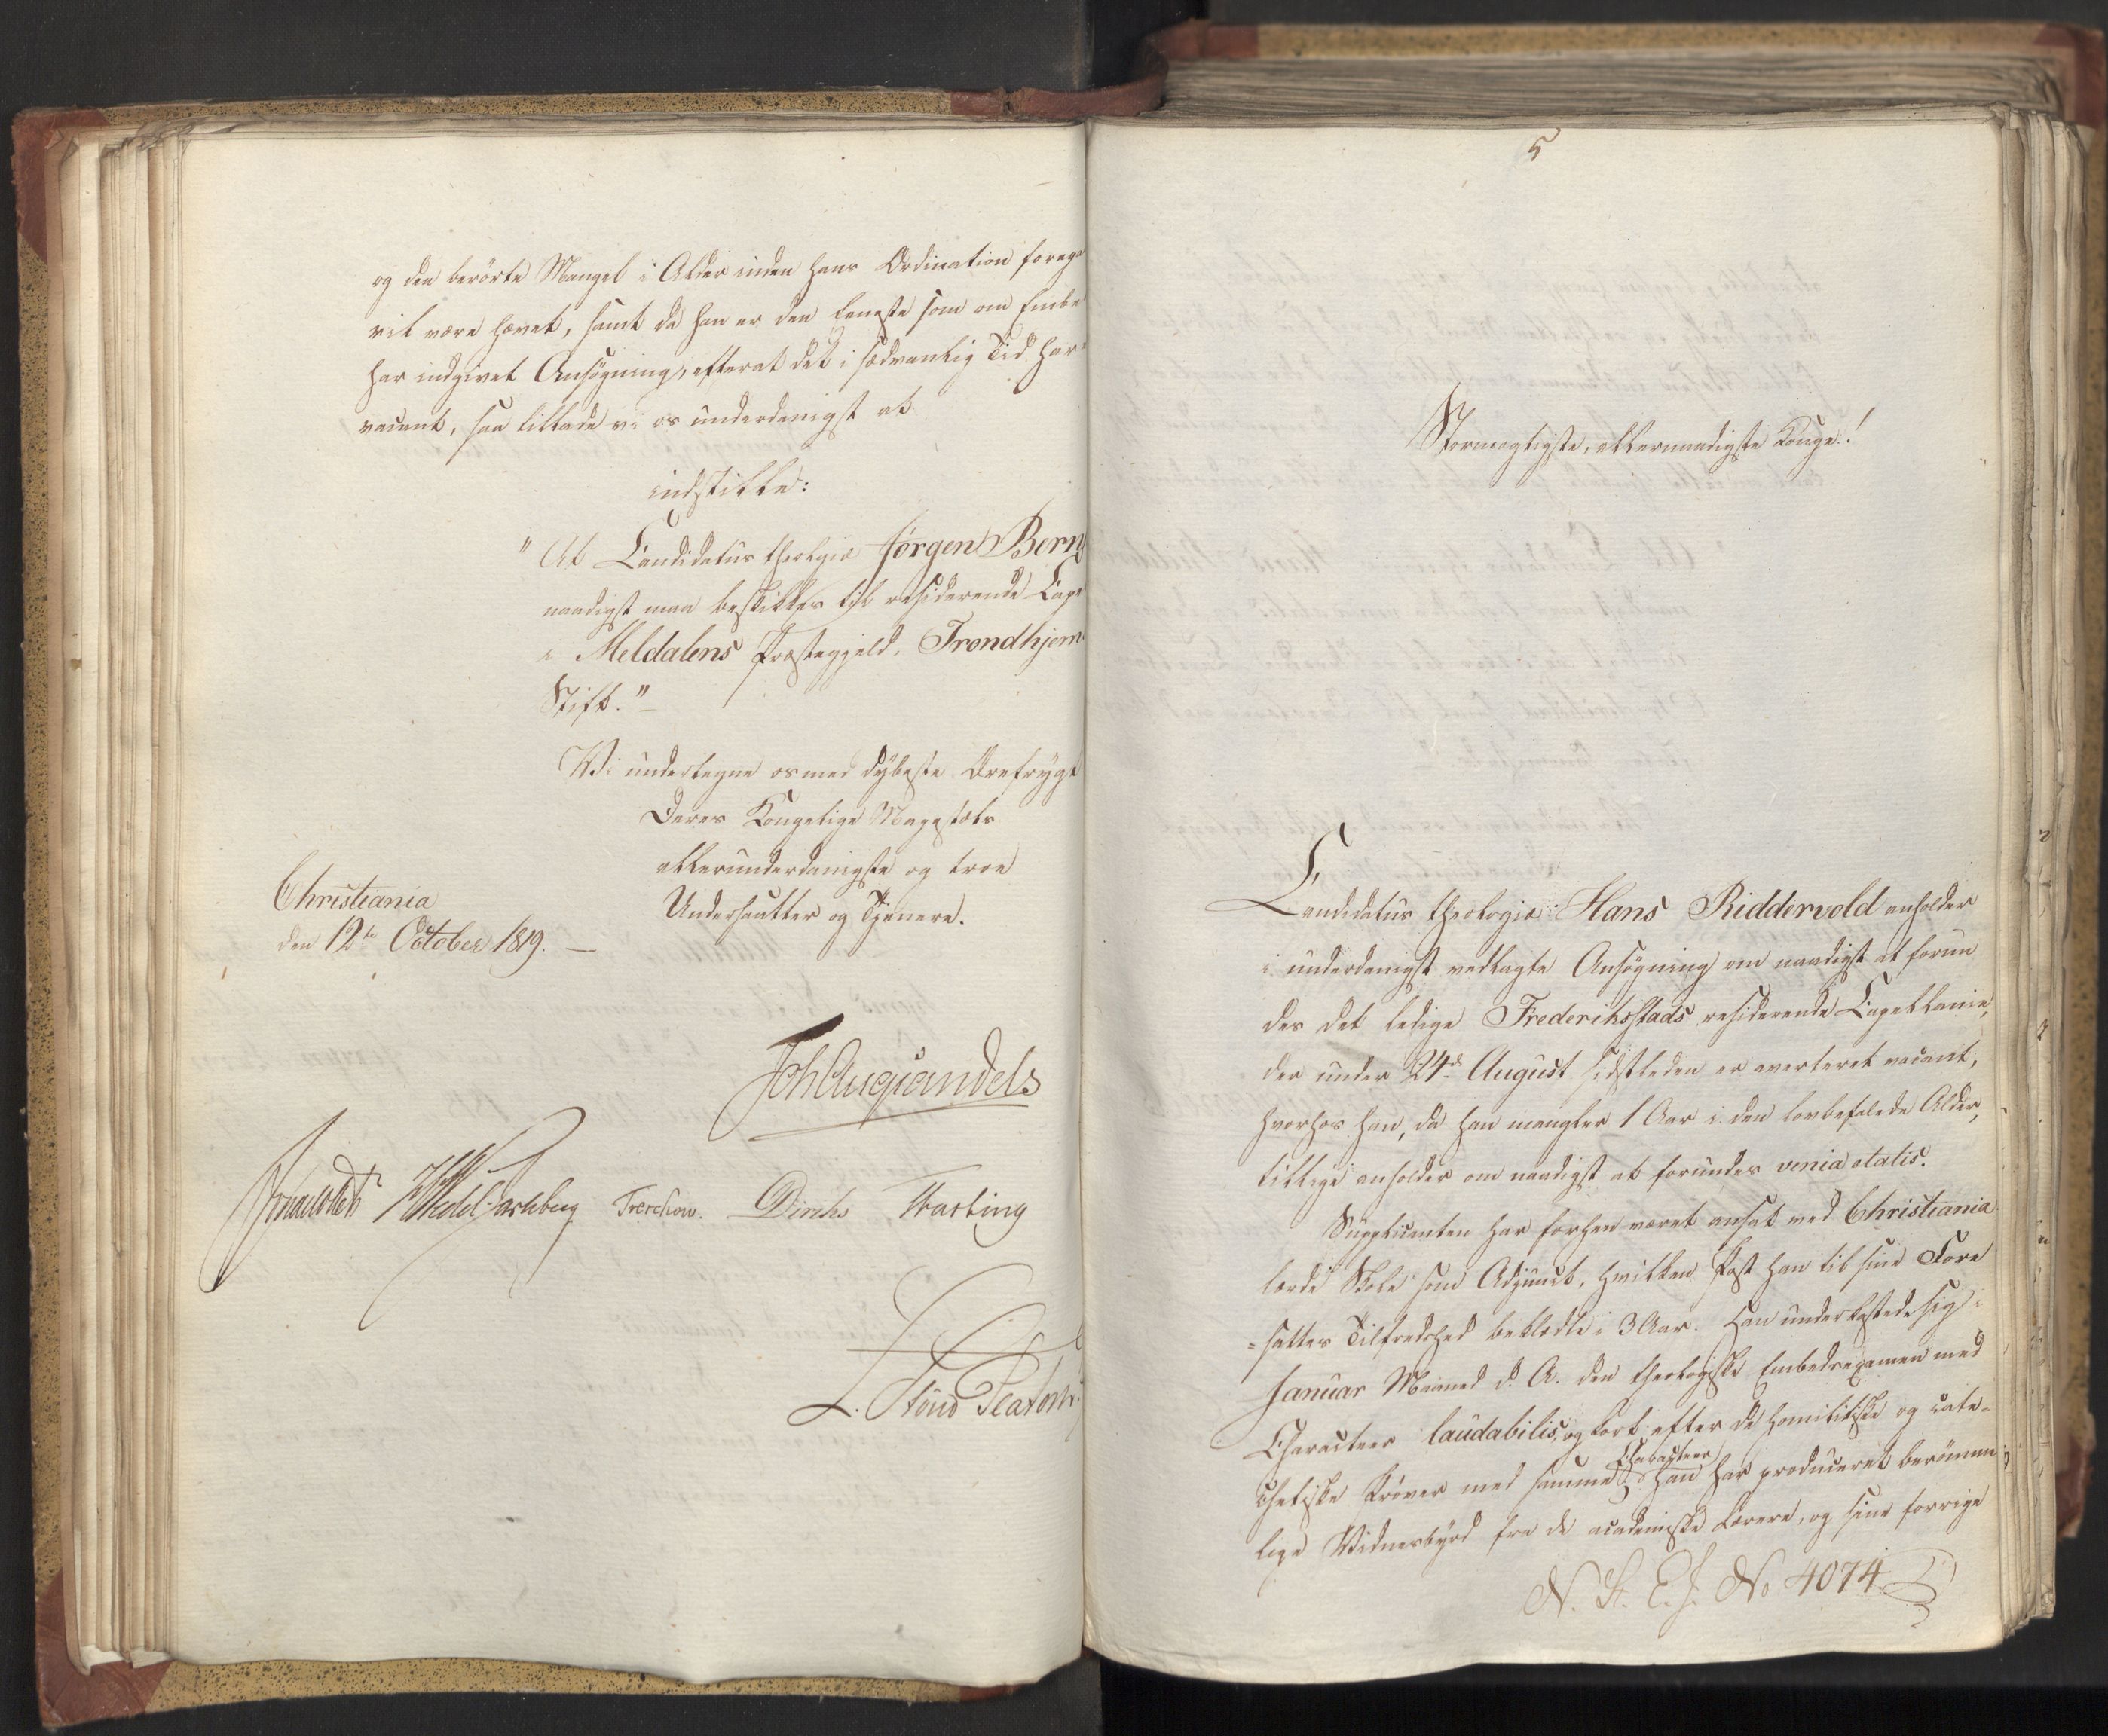 og den berörte Mangel i Alder inden hans Ordination forega
vil være hævet, samt da han er den Eneste som om Embe
har indgivet Ansögning, efterat det i sædvanlig Tid har
vacant, saa tillade vi os underdanigst at
indstille:
"At Candidatus theologiæ Jörgen Bern
naadigst maa beskikkes til residerende Cape
i Meldalens Præstegjeld, Trondhjem
Stift."
Vi undertegne os med dybeste Ærefrygt
Deres Kongelige Majestæts
allerunderdanigste og troe
Undersaatter og Tjenere.
Christiania
den 12te October 1819. —
Joh Aug Sandels
HWedel-Jarlsberg Treschow. Diriks Fasting
L. Stoud Platou
5
Stormægtigste, allernaadigste Konge!
Candidatus theologiæ Hans Riddervold anholder
i underdanigst vedlagte Ansögning om naadigst at forun
des det ledige Frederiksstads residerende Capellanie,
der under 24d August sidstleden er averteret vacant,
hvorhos han, da han mangler 1 Aar i den lovbefalede Alder,
tillige anholder om naadigst at forundes venia ætatis.
Supplicanten har forhen været ansat ved Christiania
lærde Skole som Adjunct, hvilken Post han til sine Fore
=satters Tilfredshed beklædte i 3 Aar. Han underkastede sig i
Januar Maaned d. A. den theologiske Embedsexamen med
Characteer laudabilis, og kort efter de homilitiske og cate-
chetiske Pröver med samme Characteer. Han har produceret berömme
lige Vidnesbyrd fra de academiske Lærere, og sine forrige
N. St. E. J. No 4074